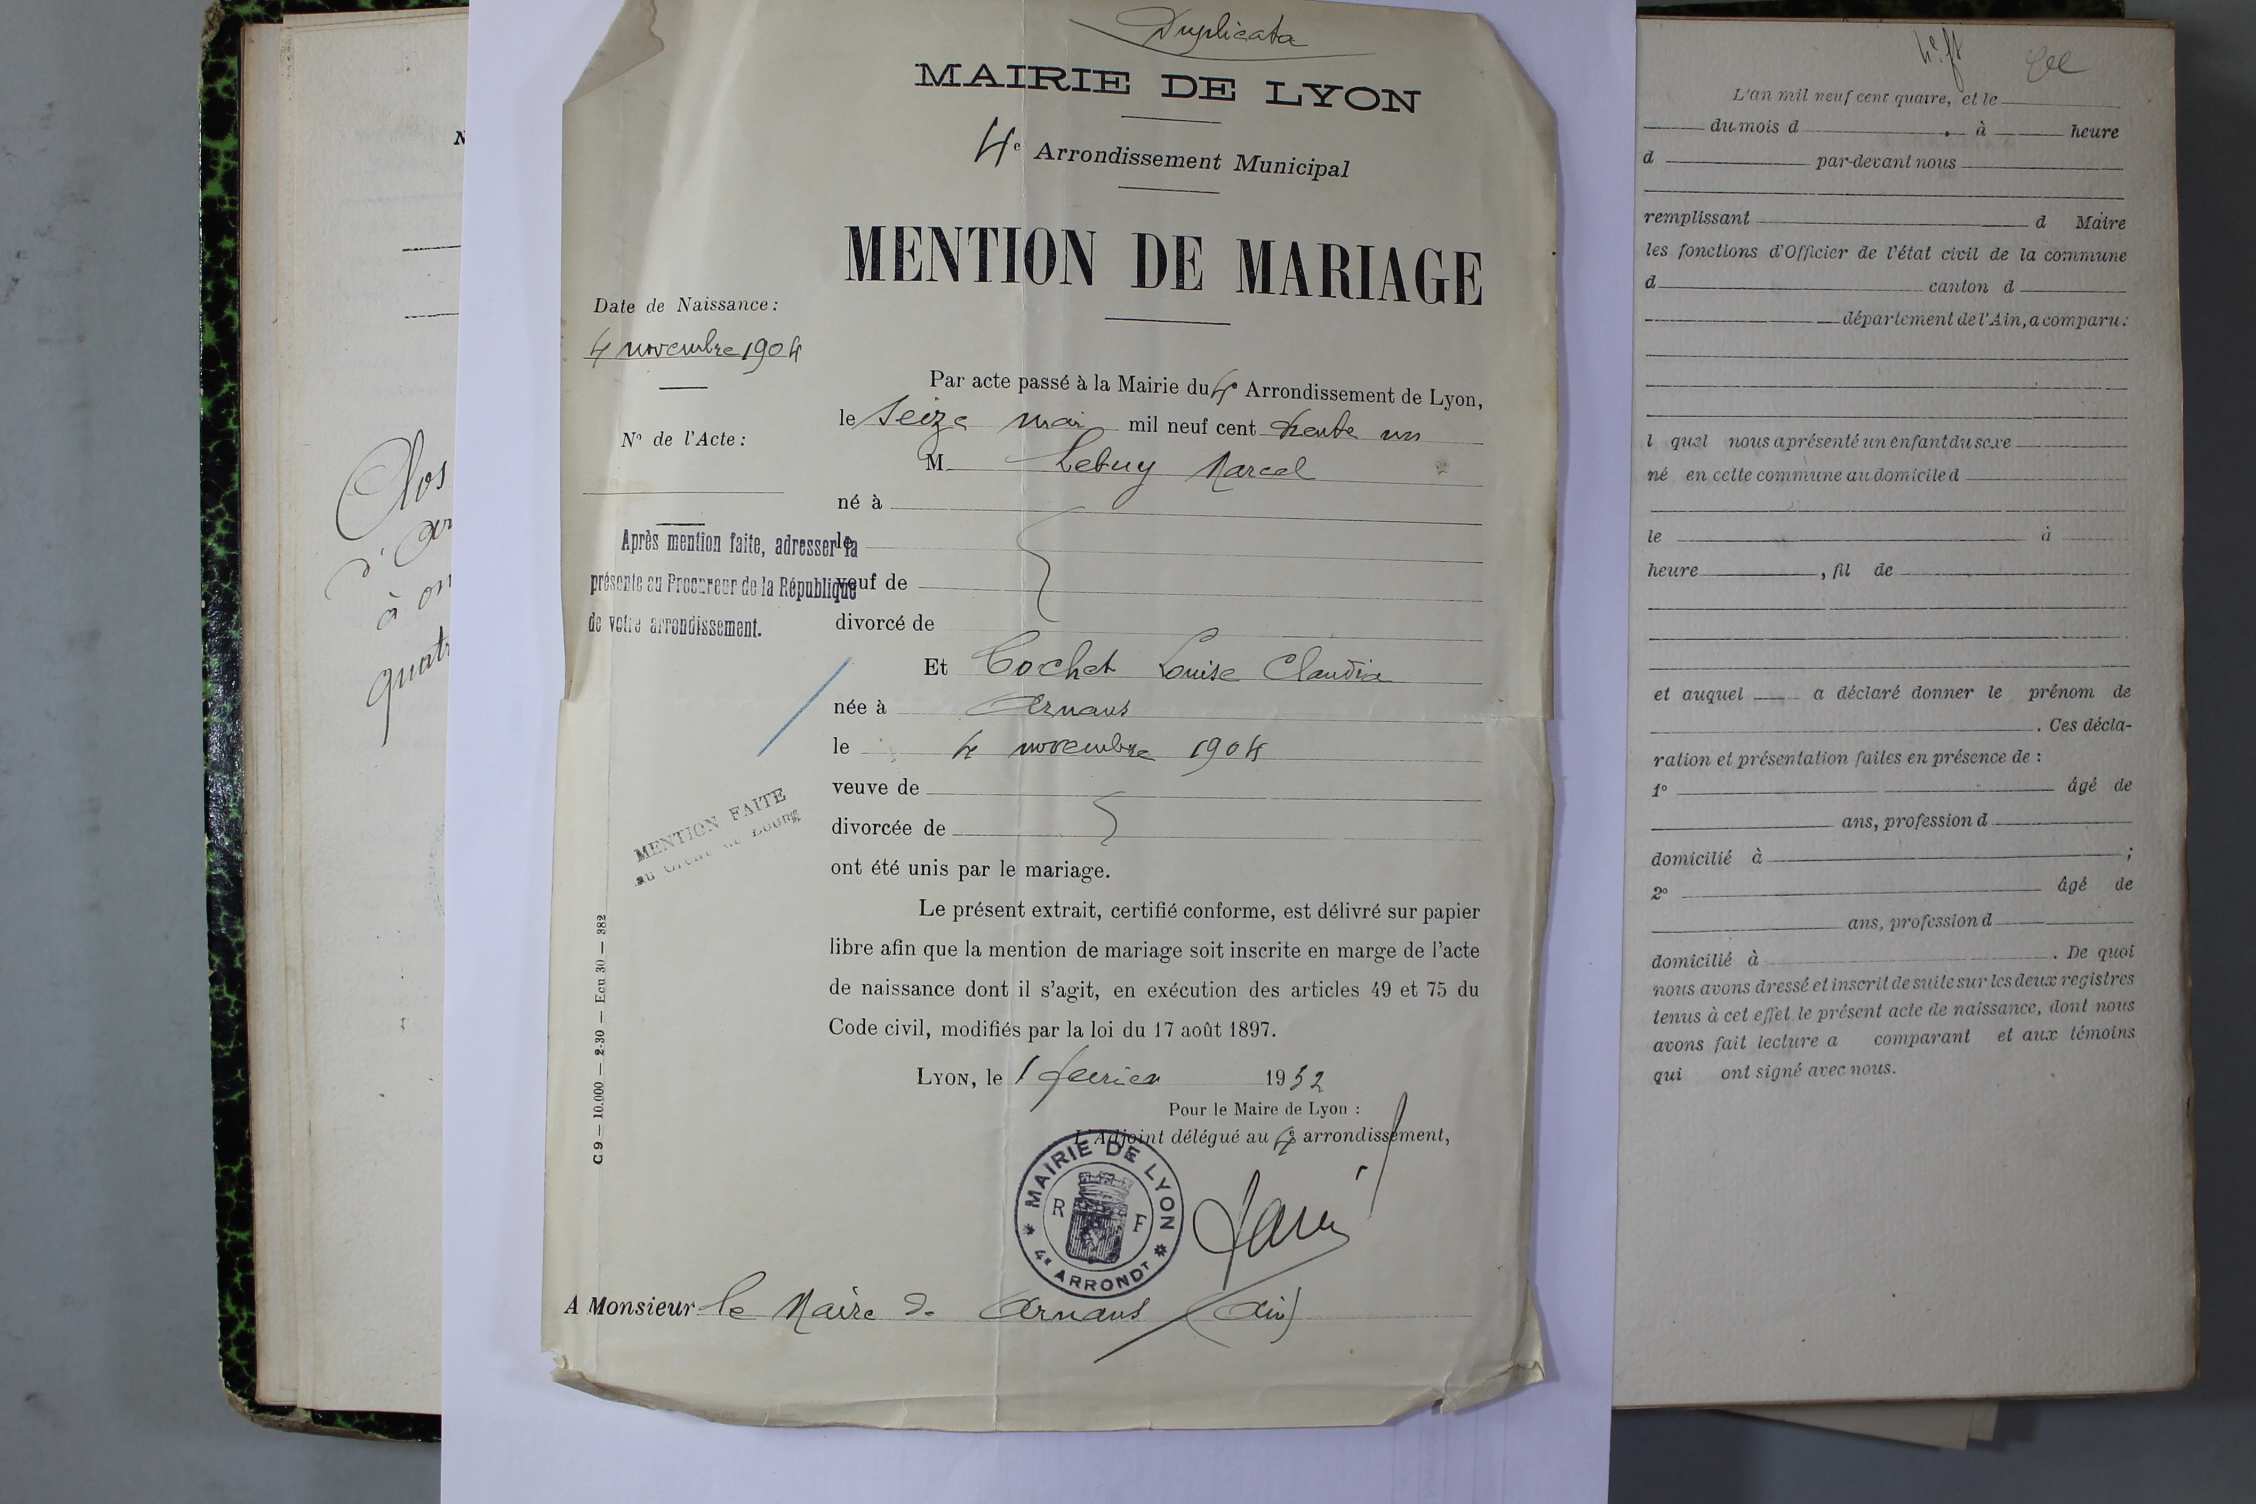 Duplicata
MAIRIE DE LYON
4e Arrondissement Municipal
MENTION DE MARIAGE
Date de Naissance :
4 novembre 1904
N° de l'Acte :
Après mention faite, adresser la
présente au Procureur de la République
de votre arrondissement.
MENTION FAITE
au Greffe de Bourg
C 9 — 10.000 — 2-30 — Ecu 30 — 382
Par acte passé à la Mairie du 4e Arrondissement de Lyon,
le seize mai mil neuf cent trente un
M. Lebuy Marcel
né à
le
veuf de
divorcé de
Et Cochet Louise Claudia
née à Arnans
le 4 novembre 1904
veuve de
divorcée de
ont été unis par le mariage.
Le présent extrait, certifié conforme, est délivré sur papier
libre afin que la mention de mariage soit inscrite en marge de l'acte
de naissance dont il s'agit, en exécution des articles 49 et 75 du
Code civil, modifiés par la loi du 17 août 1897.
LYON, le 1 février 1932
Pour le Maire de Lyon :
L'Adjoint délégué au 4e arrondissement,
MAIRIE DE LYON
R F
4e ARRONDT
A Monsieur le Maire de Arnans (Ain)
Clos
à
L'an mil neuf cent quatre, et le
du mois d à heure
d par-devant nous
remplissant d Maire
les fonctions d'Officier de l'état civil de la commune
d canton d
département de l'Ain, a comparu :
l quel nous a présenté un enfant du sexe
né en cette commune au domicile d
le à
heure , fil de
et auquel a déclaré donner le prénom de
. Ces décla-
ration et présentation faites en présence de :
1° âgé de
ans, profession d
domicilié à ;
2° âgé de
ans, profession d
domicilié à . De quoi
nous avons dressé et inscrit de suite sur les deux registres
tenus à cet effet le présent acte de naissance, dont nous
avons fait lecture a comparant et aux témoins
qui ont signé avec nous.